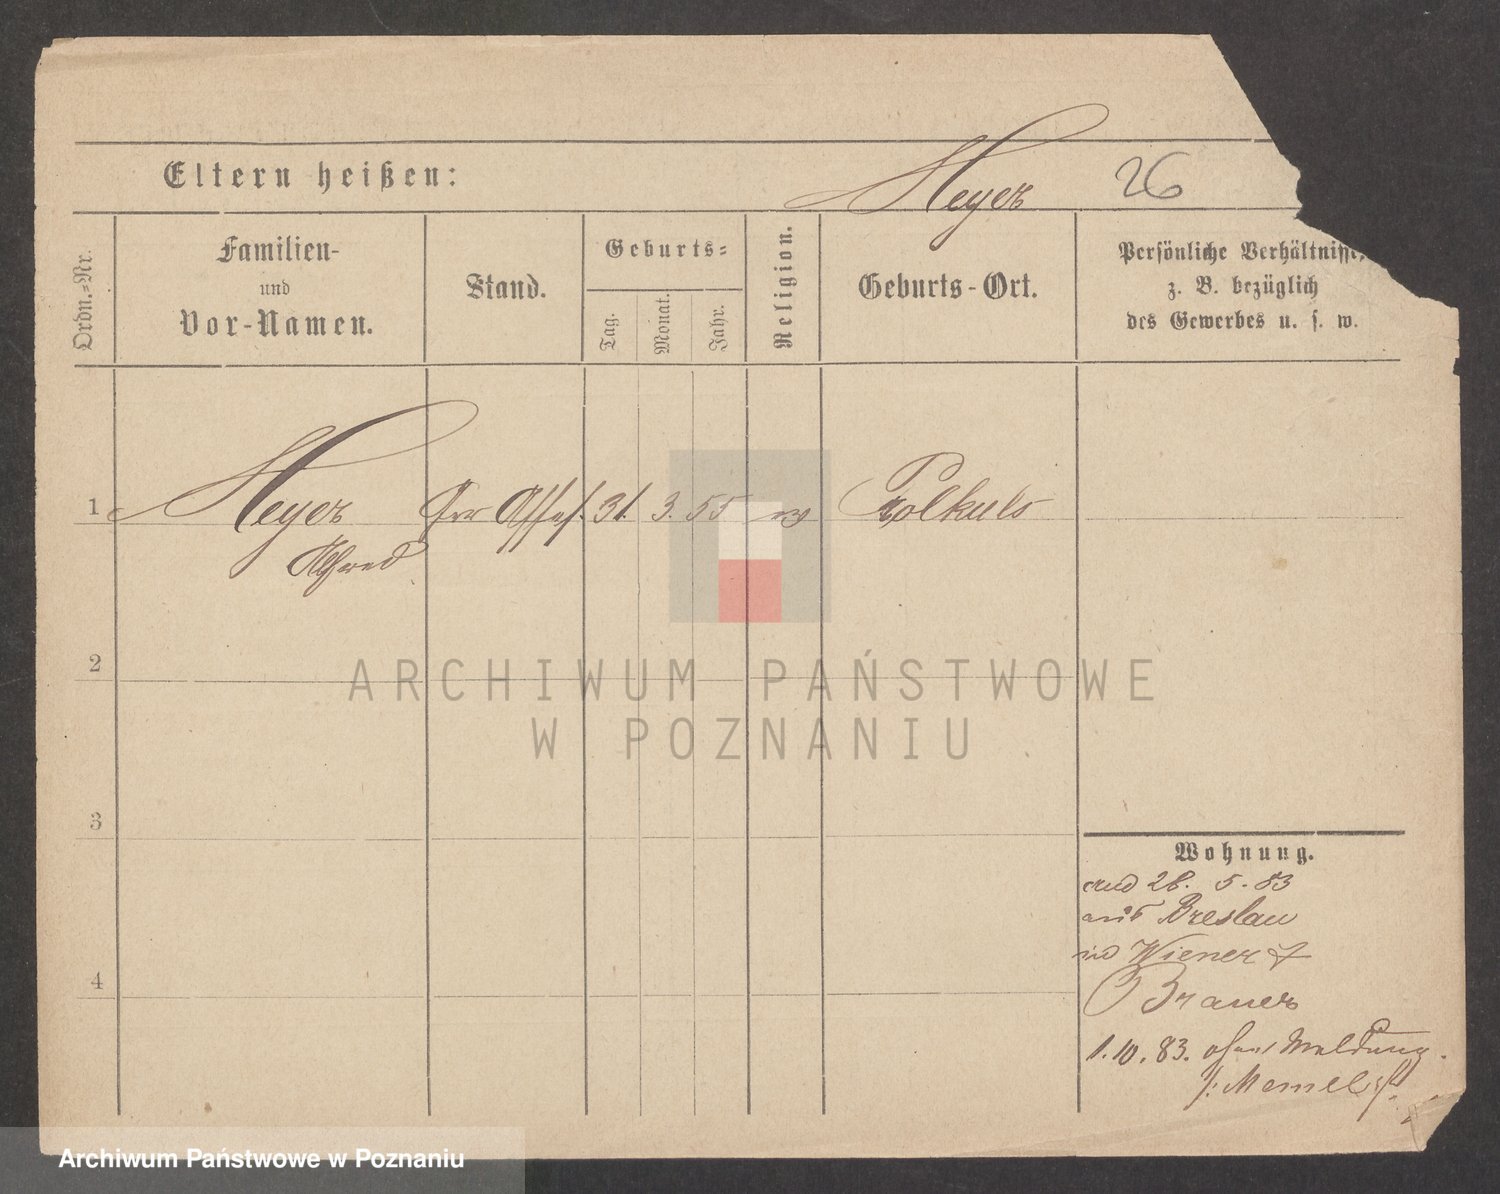 Eltern heißen:
Heyer 26
Ordn.-Nr.
Familien-
und
Vor-Namen.
Stand.
Geburts-
Tag.
Monat.
Jahr.
Religion.
Geburts-Ort.
Persönliche Verhältnisse,
z. B. bezüglich
des Gewerbes u. s. w.
1 Heyer 31. 3. 55
Alfred
2
3
4
Wohnung.
28. 5. 83
aus Breslau
Wiener
Brauer
1.10.83. ohne Meldung.
ARCHIWUM PAŃSTWOWE
W POZNANIU
Archiwum Państwowe w Poznaniu